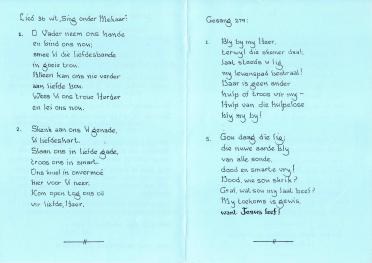 Lied 36 uit „Sing onder Mekaar":
1. O Vader neem ons hande
en bind ons nou,
smee U die liefdesbande
in goeie trou.
Alleen kan ons nie verder
aan liefde bou.
Wees U ons troue Herder
en lei ons nou.
2. Skenk aan ons U genade,
U liefdeshart.
Slaan ons in liefde gade,
troos ons in smart.
Ons kniel in onvermoë
hier voor U neer.
Kom open tog ons oë
vir liefde, Heer.
Gesang 279:
1. Bly by my Heer,
terwyl die skemer daal,
laat steeds U lig
my lewenspad bestraal!
Daar is geen ander
hulp of troos vir my –
Hulp van die hulpelose
bly my by!
5. Gou daag die lig,
die nuwe aarde bly
van alle sonde,
dood en smarte vry!
Dood, wie sou skrik?
Graf, wat sou my laat beef?
My toekoms is gewis,
want Jesus leef!